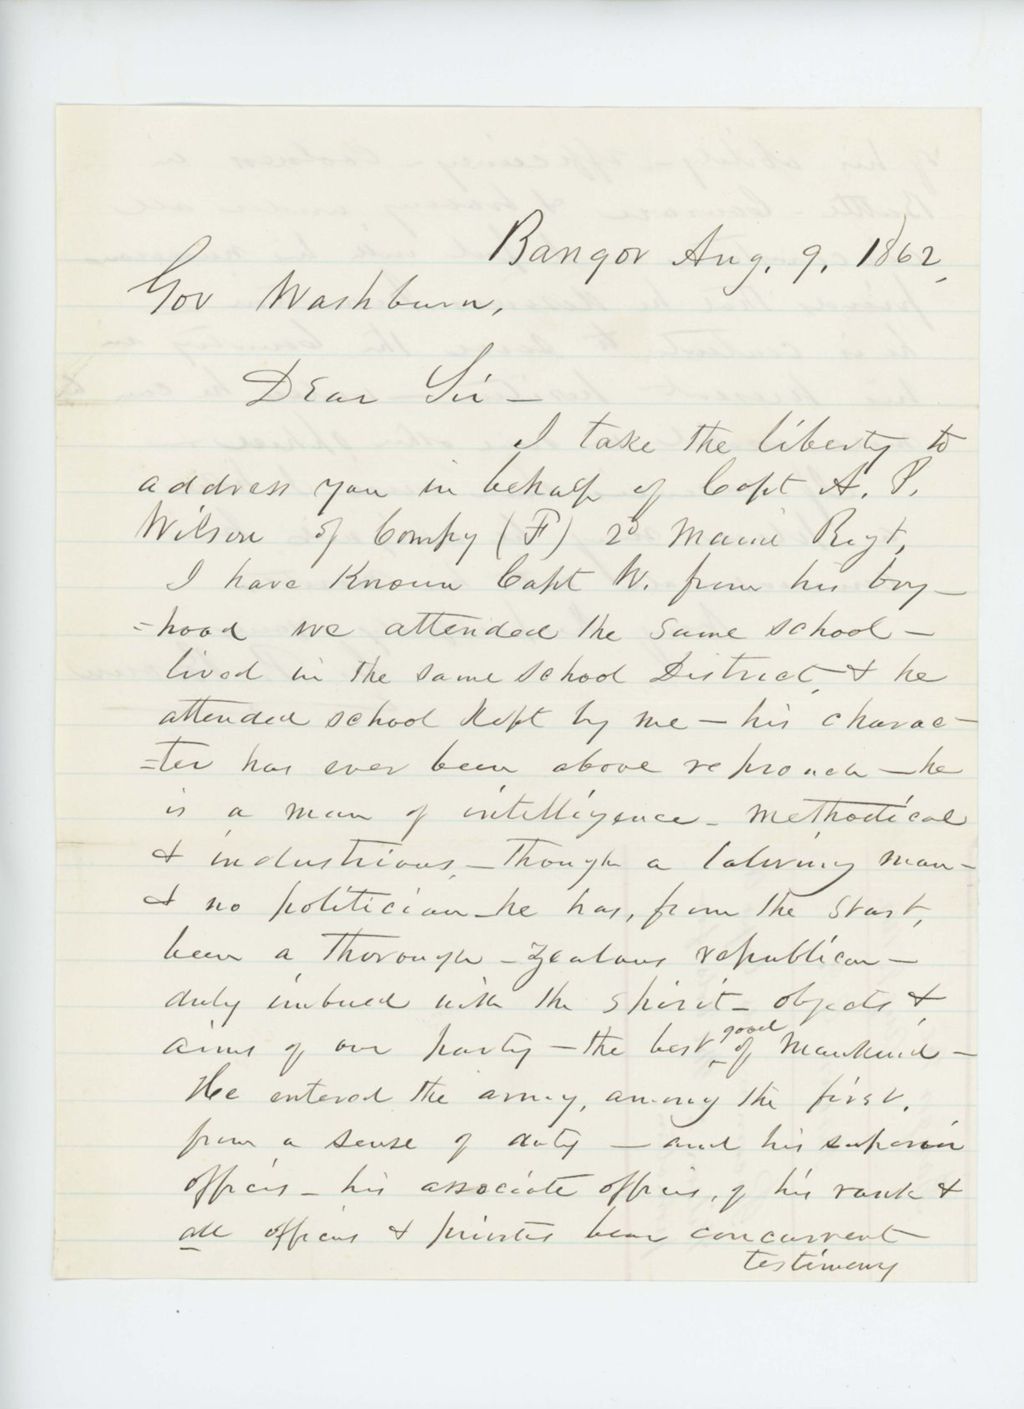 Bangor Aug. 9, 1862,
Gov Washburn,
Dear Sir —
I take the liberty to
address you in behalf of Capt A. P.
Wilson of Compy (F) 2d Maine Regt,
I have Known Capt W. from his boy-
=hood we attended the same school —
lived in the same school District, & he
attended school Kept by me — his charac-
=ter has ever been above reproach — he
is a man of intelligence — methodical
& industrious, — though a laboring man —
& no politician — he has, from the start,
been a thorough — zealous republican —
duly imbued with the spirit — objects &
aims of our party — the best good of mankind —
He entered the army, among the first,
from a sense of duty — and his superior
officers — his associate officers, of his rank &
all officers & privates bear concurrent
testimony